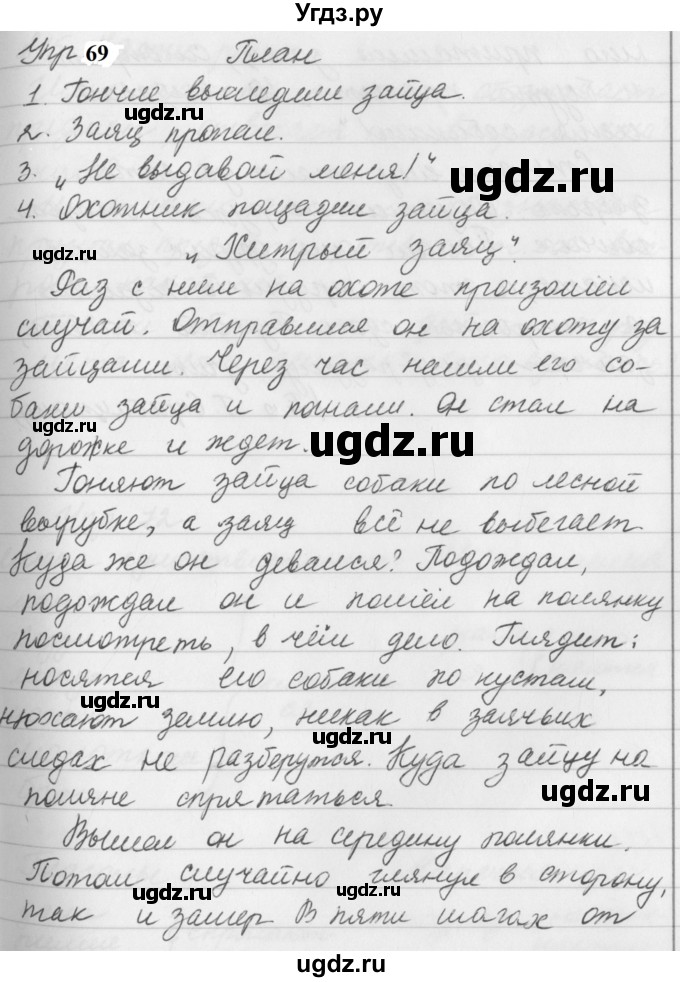 Угдз.ру
Упр 69 План
1. Гончие выследили зайца.
2. Заяц пропал.
3. „Не выдавай меня!“
4. Охотник пощадил зайца.
„Хитрый заяц“.
Раз с ним на охоте произошёл
случай. Отправился он на охоту за
зайцами. Через час нашли его со-
баки зайца и погнали. Он стал на
дорожке и ждет.
Гоняют зайца собаки по лесной
вырубке, а заяц всё не выбегает.
Куда же он девался? Подождал,
подождал он и пошёл на полянку
посмотреть, в чём дело. Глядит:
носятся его собаки по кустам,
нюхают землю, никак в заячьих
следах не разберутся. Куда зайцу на
поляне спрятаться.
Вышел он на середину полянки.
Потом случайно глянул в сторону,
так и замер В пяти шагах от
ugdz.ru
ugdz.ru
ugdz.ru
ugdz.ru
ugdz.ru
ugdz.ru
ugdz.ru
ugdz.ru
ugdz.ru
ugdz.ru
ugdz.ru
ugdz.ru
ugdz.ru
ugdz.ru